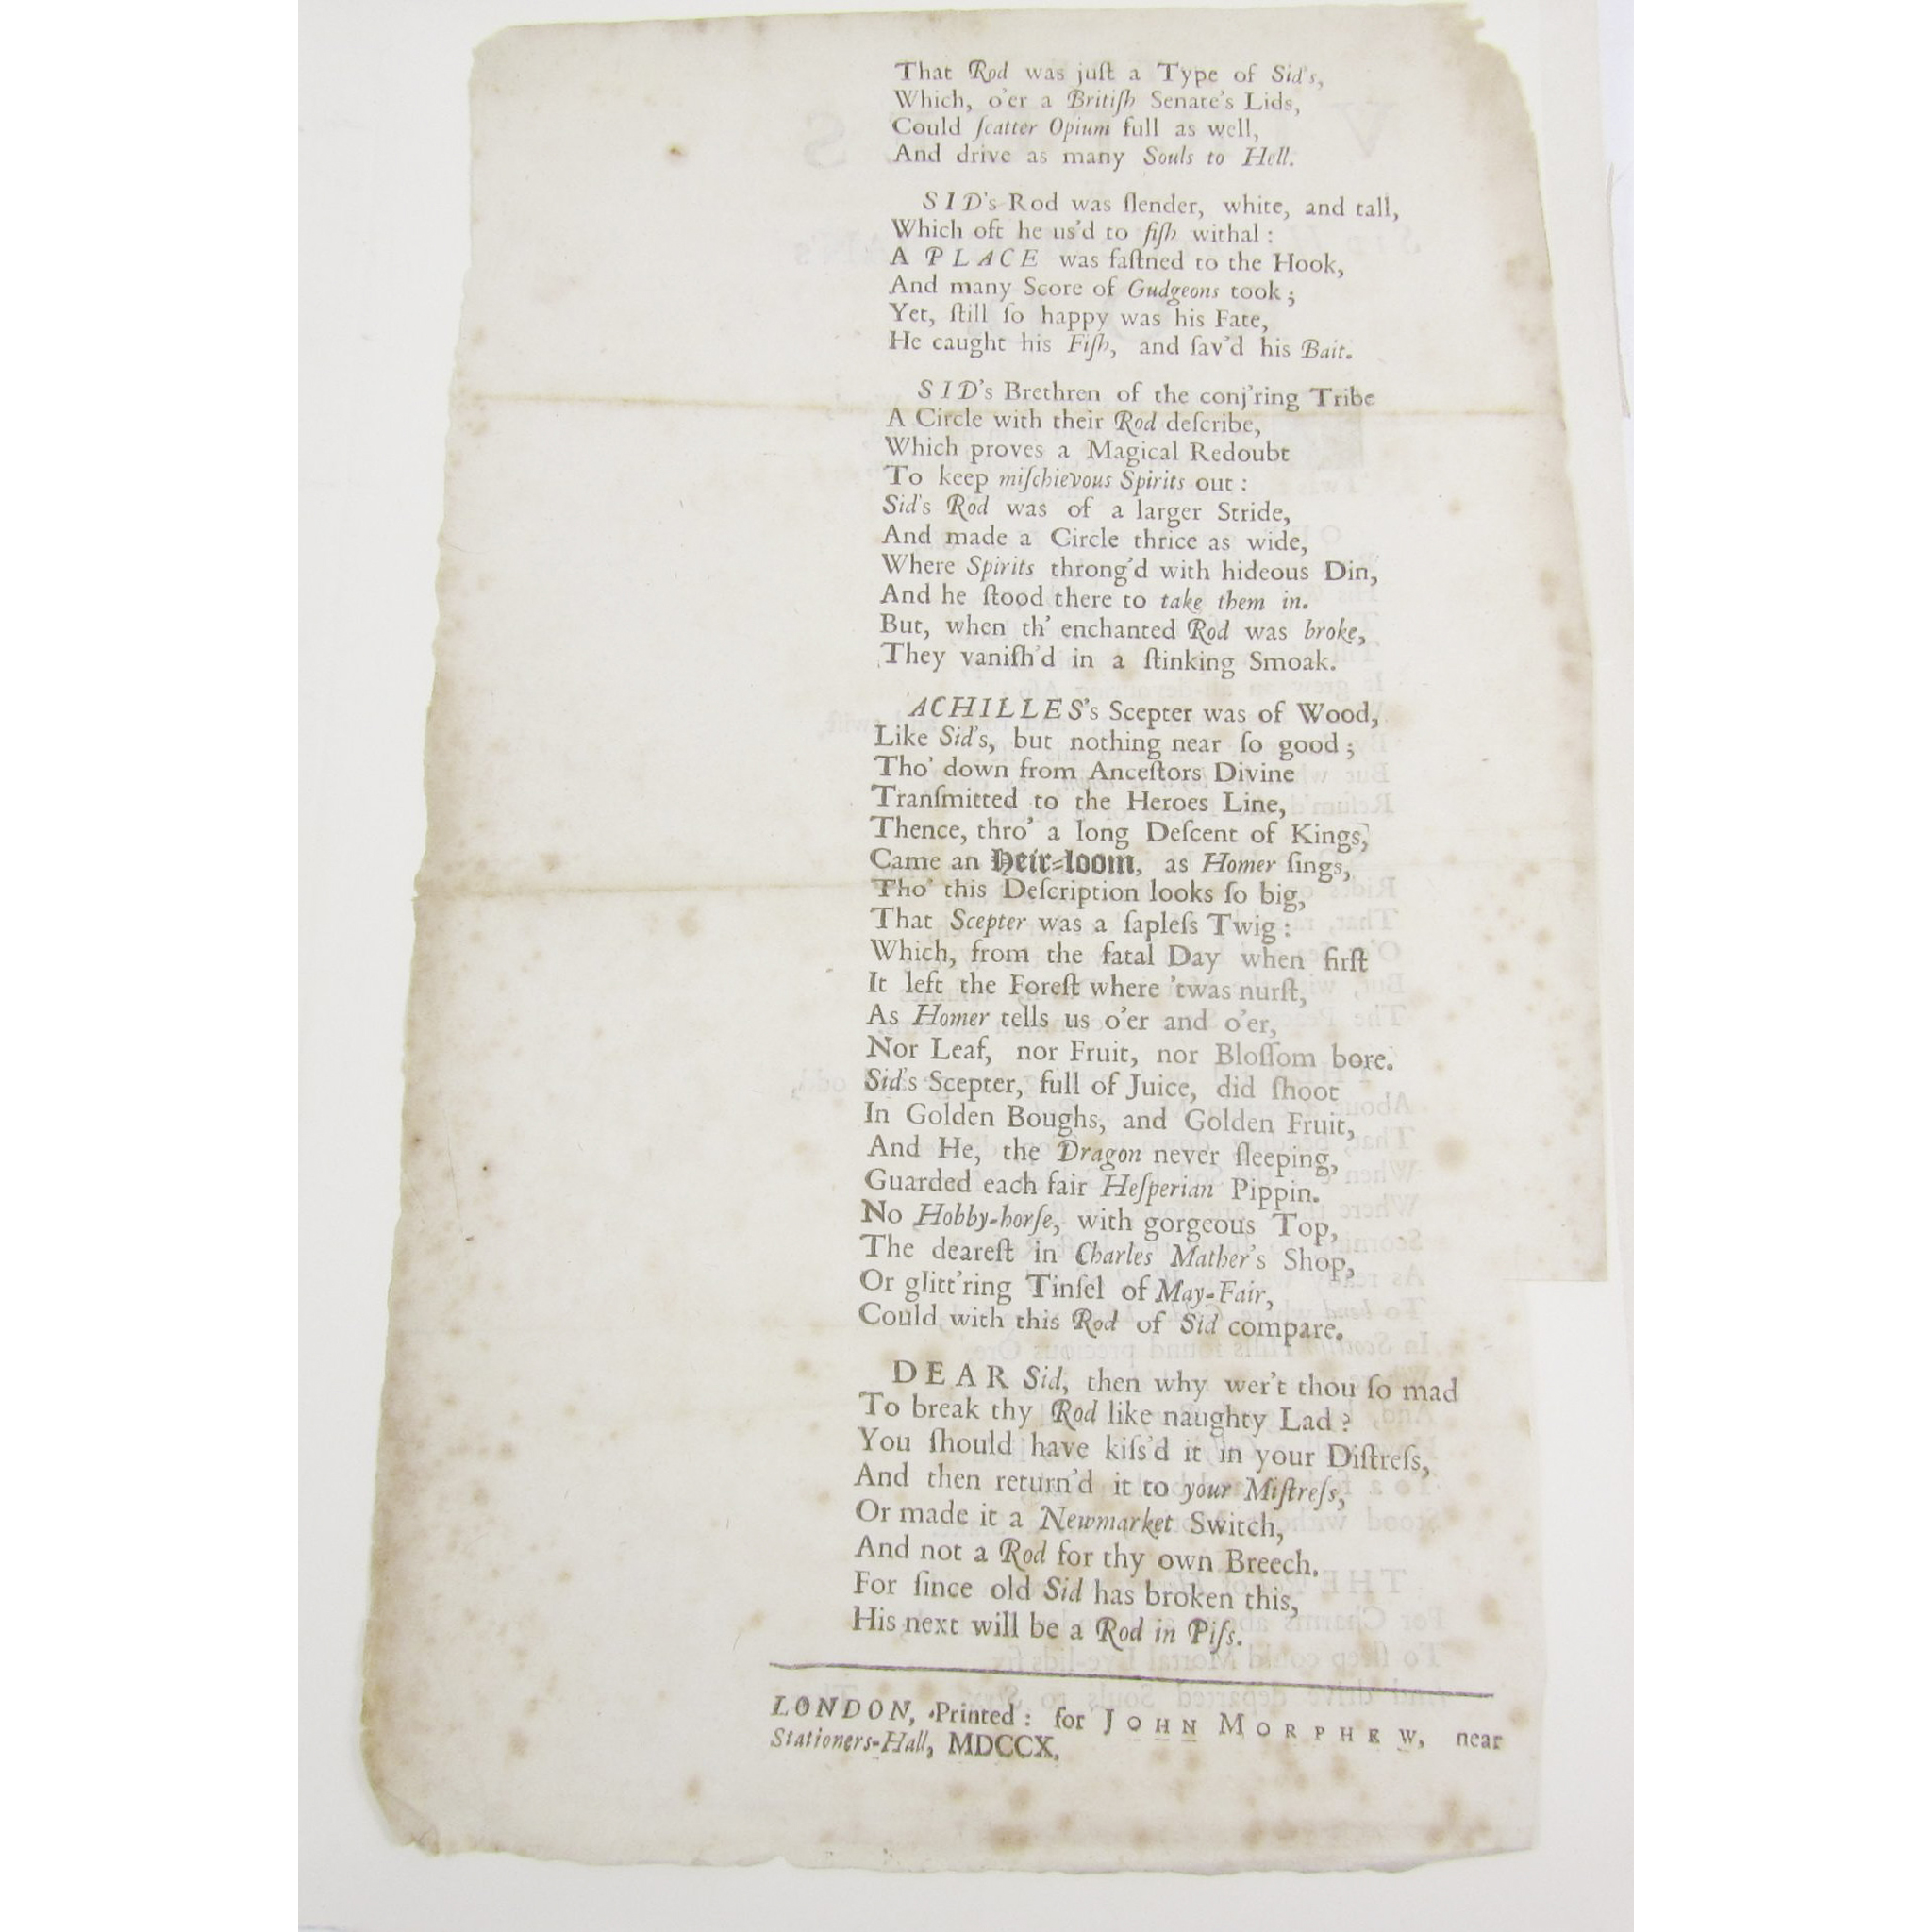 That Rod was juſt a Type of Sid's,
Which, o'er a Britiſh Senate's Lids,
Could ſcatter Opium full as well,
And drive as many Souls to Hell.
SID's Rod was ſlender, white, and tall,
Which oft he us'd to fiſh withal :
A PLACE was faſtned to the Hook,
And many Score of Gudgeons took ;
Yet, ſtill ſo happy was his Fate,
He caught his Fiſh, and ſav'd his Bait.
SID's Brethren of the conj'ring Tribe
A Circle with their Rod deſcribe,
Which proves a Magical Redoubt
To keep miſchievous Spirits out :
Sid's Rod was of a larger Stride,
And made a Circle thrice as wide,
Where Spirits throng'd with hideous Din,
And he ſtood there to take them in.
But, when th' enchanted Rod was broke,
They vaniſh'd in a ſtinking Smoak.
ACHILLES's Scepter was of Wood,
Like Sid's, but nothing near ſo good ;
Tho' down from Anceſtors Divine
Tranſmitted to the Heroes Line,
Thence, thro' a long Deſcent of Kings,
Came an Heir-loom, as Homer ſings,
Tho' this Deſcription looks ſo big,
That Scepter was a ſapleſs Twig :
Which, from the fatal Day when firſt
It left the Foreſt where 'twas nurſt,
As Homer tells us o'er and o'er,
Nor Leaf, nor Fruit, nor Bloſſom bore.
Sid's Scepter, full of Juice, did ſhoot
In Golden Boughs, and Golden Fruit,
And He, the Dragon never ſleeping,
Guarded each fair Heſperian Pippin.
No Hobby-horſe, with gorgeous Top,
The deareſt in Charles Mather's Shop,
Or glitt'ring Tinſel of May-Fair,
Could with this Rod of Sid compare.
DEAR Sid, then why wer't thou ſo mad
To break thy Rod like naughty Lad ?
You ſhould have kiſs'd it in your Diſtreſs,
And then return'd it to your Miſtreſs,
Or made it a Newmarket Switch,
And not a Rod for thy own Breech.
For ſince old Sid has broken this,
His next will be a Rod in Piſs.
LONDON, Printed : for JOHN MORPHEW, near
Stationers-Hall, MDCCX.